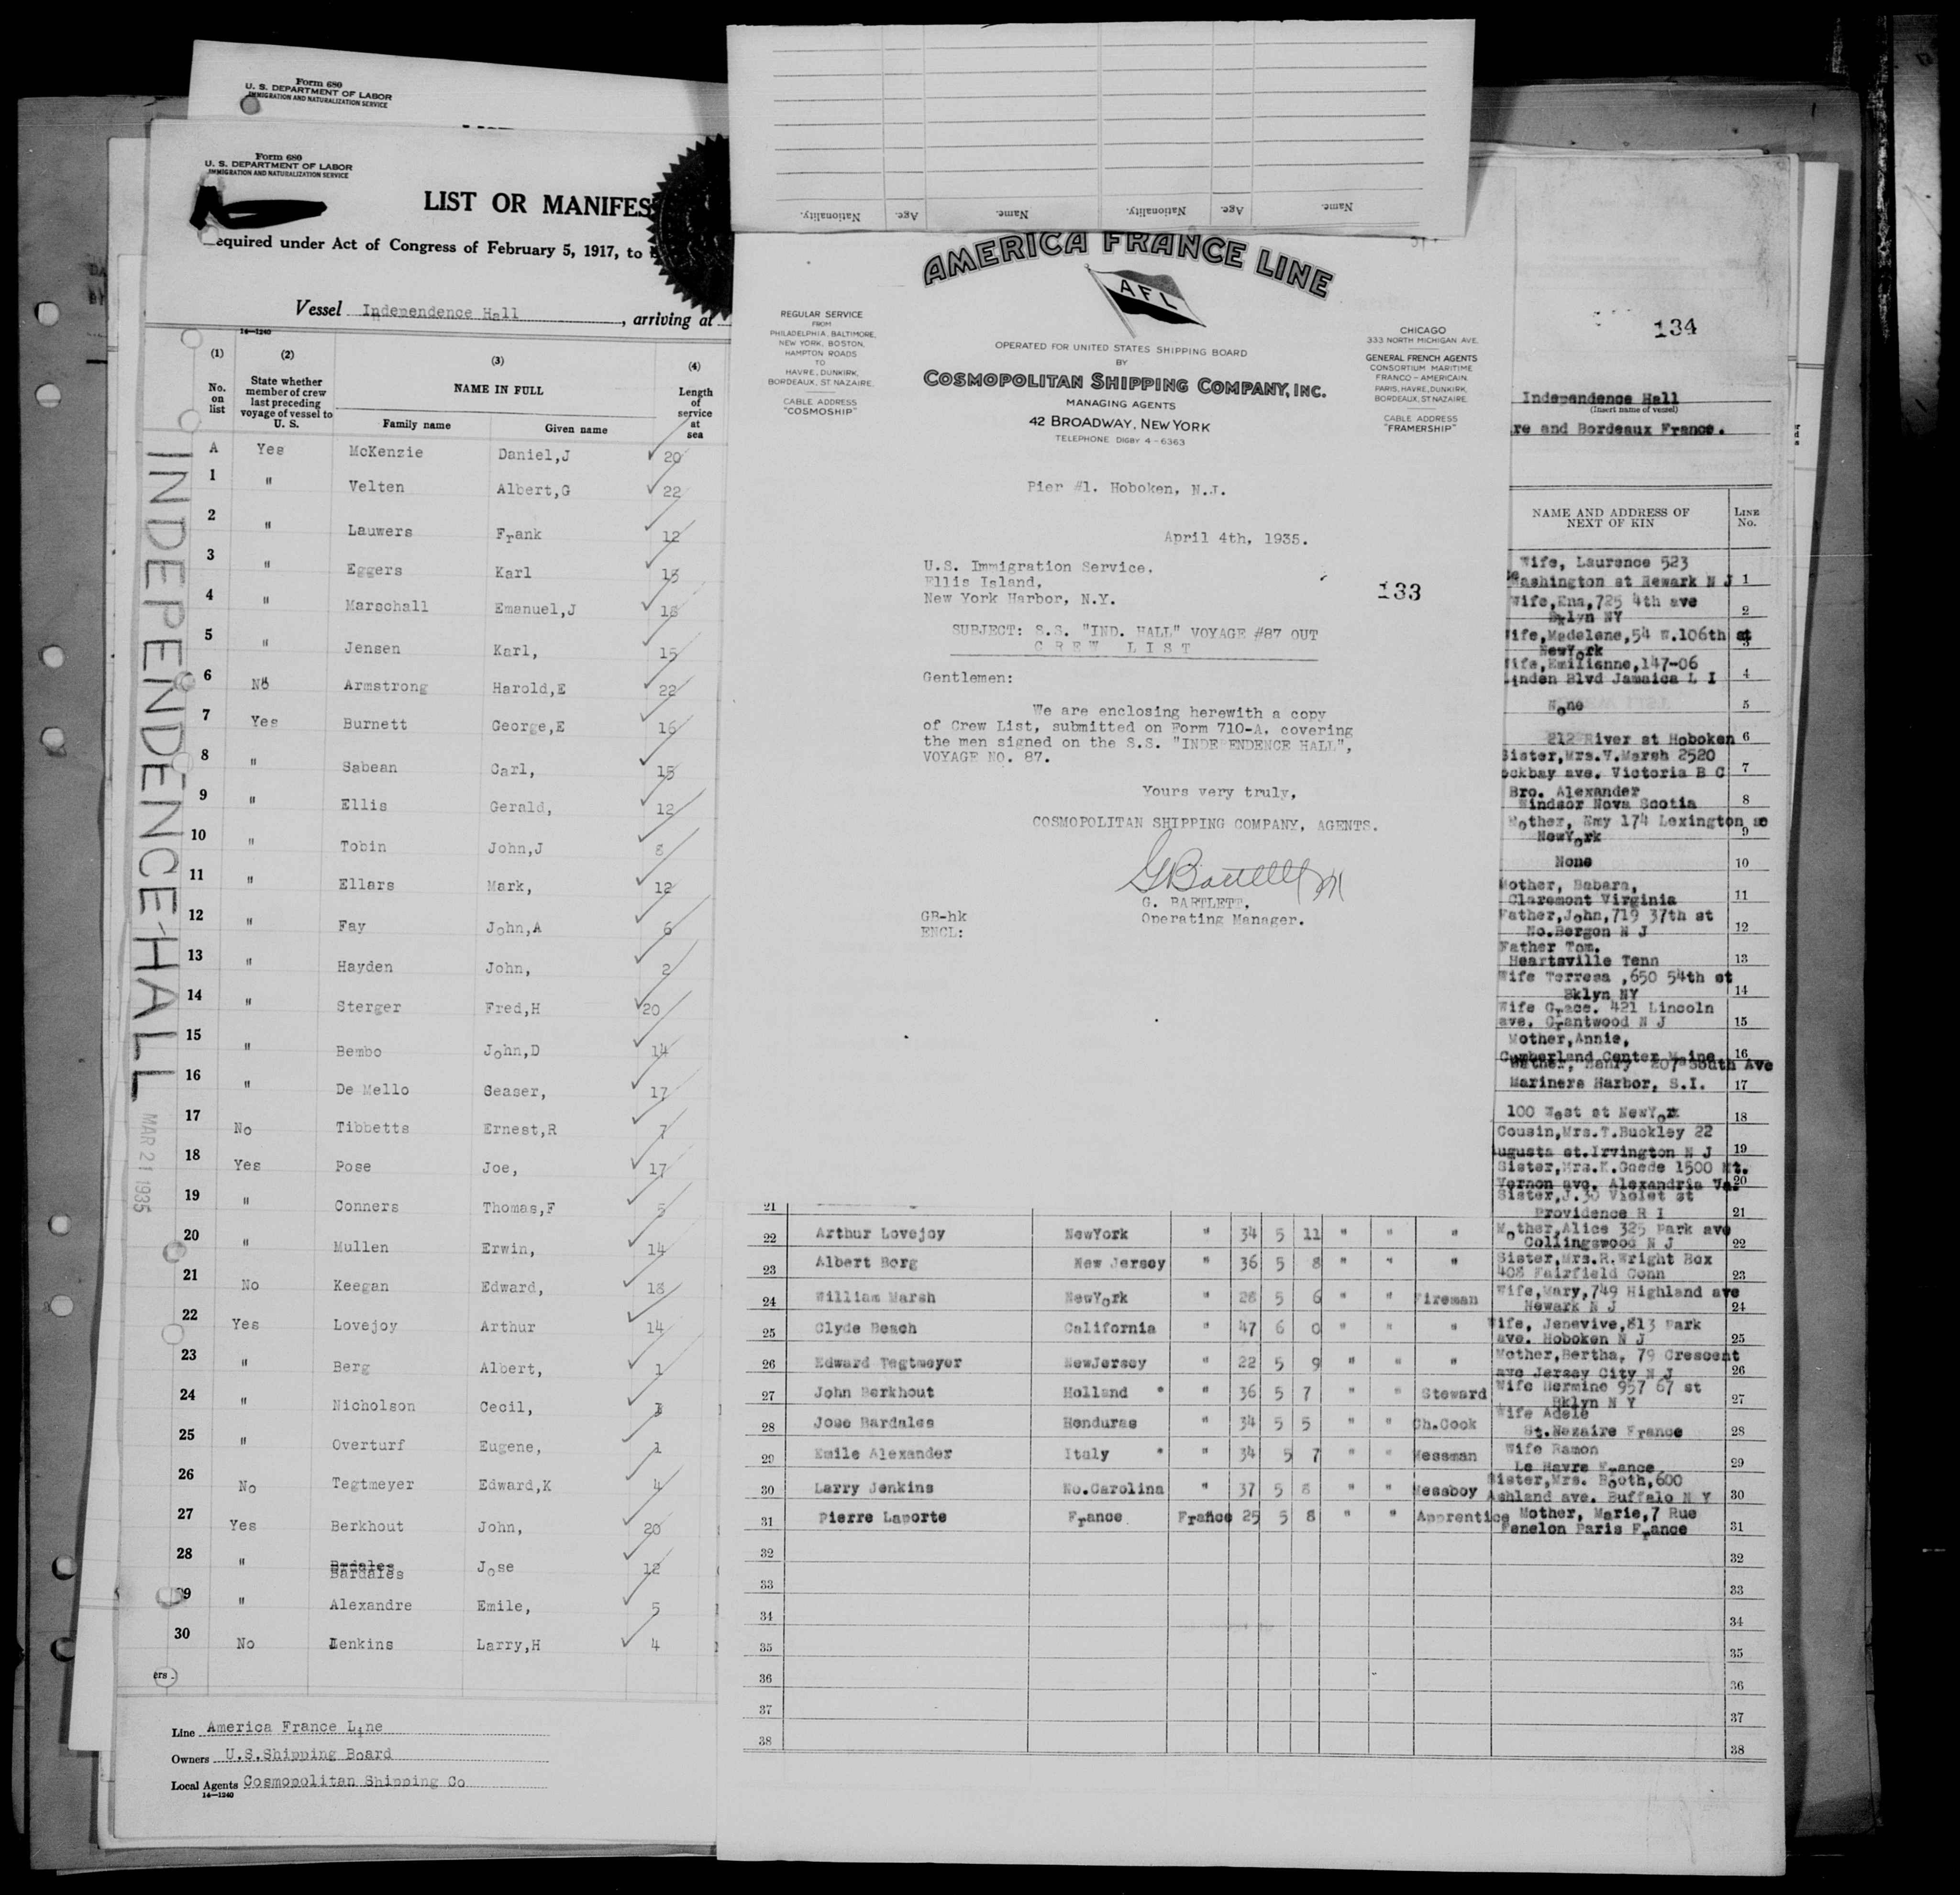 Form 680
U. S. DEPARTMENT OF LABOR
IMMIGRATION AND NATURALIZATION SERVICE
Form 680
U. S. DEPARTMENT OF LABOR
IMMIGRATION AND NATURALIZATION SERVICE
LIST OR MANIFES
equired under Act of Congress of February 5, 1917, to
Vessel Independence Hall , arriving at
14—1240
(1) (2) (3) (4)
No. on list State whether member of crew last preceding voyage of vessel to U. S. NAME IN FULL Length of service at sea
Family name Given name
A Yes McKenzie Daniel,J 20
1 " Velten Albert,G 22
2 " Lauwers Frank 12
3 " Eggers Karl 15
4 " Marschall Emanuel,J 18
5 " Jensen Karl, 15
6 No Armstrong Harold,E 22
7 Yes Burnett George,E 16
8 " Sabean Carl, 15
9 " Ellis Gerald, 12
10 " Tobin John,J 8
11 " Ellars Mark, 12
12 " Fay John,A 6
13 " Hayden John, 2
14 " Sterger Fred,H 20
15 " Bembo John,D 14
16 " De Mello Seaser, 17
17 No Tibbetts Ernest,R 7
18 Yes Pose Joe, 17
19 " Conners Thomas,F 5
20 " Mullen Erwin, 14
21 No Keegan Edward, 18
22 Yes Lovejoy Arthur 14
23 " Berg Albert, 1
24 " Nicholson Cecil, 3
25 " Overturf Eugene, 1
26 No Tegtmeyer Edward,K 4
27 Yes Berkhout John, 20
28 " Bardales Jose 12
29 " Alexandre Emile, 5
30 No Jenkins Larry,H 4
ers
Line America France Line
Owners U.S.Shipping Board
Local Agents Cosmopolitan Shipping Co
14—1240
INDEPENDENCE-HALL
MAR 21 1935
Name. Age. Nationality. Name. Age. Nationality.
AMERICA FRANCE LINE
AFL
REGULAR SERVICE
FROM
PHILADELPHIA, BALTIMORE,
NEW YORK, BOSTON,
HAMPTON ROADS
TO
HAVRE, DUNKIRK,
BORDEAUX, ST. NAZAIRE.
CABLE ADDRESS
"COSMOSHIP"
OPERATED FOR UNITED STATES SHIPPING BOARD
BY
COSMOPOLITAN SHIPPING COMPANY, INC.
MANAGING AGENTS
42 BROADWAY, NEW YORK
TELEPHONE DIGBY 4-6363
CHICAGO
333 NORTH MICHIGAN AVE.
GENERAL FRENCH AGENTS
CONSORTIUM MARITIME
FRANCO-AMERICAIN.
PARIS, HAVRE, DUNKIRK,
BORDEAUX, ST NAZAIRE.
CABLE ADDRESS
"FRAMERSHIP"
Pier #1. Hoboken, N.J.
April 4th, 1935.
U.S. Immigration Service.
Ellis Island,
New York Harbor, N.Y.
133
SUBJECT: S.S. "IND. HALL" VOYAGE #87 OUT
CREW LIST
Gentlemen:
We are enclosing herewith a copy
of Crew List, submitted on Form 710-A. covering
the men signed on the S.S. "INDEPENDENCE HALL",
VOYAGE NO. 87.
Yours very truly,
COSMOPOLITAN SHIPPING COMPANY, AGENTS.
G. BARTLETT.
Operating Manager.
GB-hk
ENCL:
134
Independence Hall
(Insert name of vessel)
re and Bordeaux France.
NAME AND ADDRESS OF NEXT OF KIN LINE No.
Wife, Laurence 523
Washington st Newark N J 1
Wife,Ena,725 4th ave
Bklyn NY 2
ife,Madelene,54 W.106th st
NewYork 3
ife,Emilianne,147-06
inden Blvd Jamaica L I 4
None 5
212 River st Hoboken 6
Sister,Mrs.V.Marsh 2520
ockbay ave. Victoria B C 7
Bro. Alexander
Windsor Nova Scotia 8
Mother, Emy 174 Lexington
NewYork 9
None 10
Mother, Babara,
Claremont Virginia 11
Father,John,719 37th st
No.Bergon N J 12
Father Tom.
Heartsville Tenn 13
Wife Terresa ,650 54th st
Bklyn NY 14
Wife Grace. 421 Lincoln
ave. Grantwood N J 15
Mother,Annie,
Cumberland Center Maine 16
Henry 207 South Ave
Mariners Harbor, S.I. 17
100 West st NewYork 18
Cousin,Mrs.T.Buckley 22
ugusta st.Irvington N J 19
Sister,Mrs.K.Goede 1500 Mt.
Vernon ave. Alexandria Va. 20
Sister,J.30 Violet st
21 Providence R I 21
22 Arthur Lovejoy NewYork " 34 5 11 " " " Mother,Alice 325 Park ave
Collingswood N J 22
23 Albert Berg New Jersey " 36 5 8 " " " Sister,Mrs.R.Wright Box
408 Fairfield Conn 23
24 William Marsh NewYork " 28 5 6 " " Fireman Wife,Mary,749 Highland ave
Newark N J 24
25 Clyde Beach California " 47 6 0 " " " Wife, Jenevive,813 Park
ave. Hoboken N J 25
26 Edward Tegtmeyer NewJersey " 22 5 9 " " " Mother,Bertha, 79 Crescent
ave Jersey City N J 26
27 John Berkhout Holland * " 36 5 7 " " Steward Wife Hermine 957 67 st
Bklyn N Y 27
28 Jose Bardales Honduras " 34 5 5 " " Ch.Cook Wife Adele
St.Nazaire France 28
29 Emile Alexander Italy * " 34 5 7 " " Messman Wife Ramon
Le Havre France 29
30 Larry Jenkins No.Carolina " 37 5 8 " " Messboy Sister,Mrs. Booth,600
Ashland ave. Buffalo N Y 30
31 Pierre Laporte France France 25 5 8 " " Apprentice Mother, Marie,7 Rue
Fenelon Paris France 31
32 32
33 33
34 34
35 35
36 36
37 37
38 38